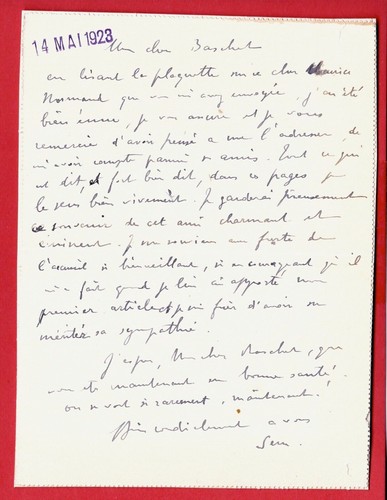 14 MAI 1923
Mon cher Baschet
en lisant la plaquette sur ce cher Maurice
Normand que vous m'avez envoyée, j'ai été
bien ému, je vous assure et je vous
remercie d'avoir pensé à me l'adresser, de
m'avoir compté parmi ses amis. Tout ce qui
est dit, et fort bien dit, dans ces pages je
le sens bien vivement. Je garderai précieusement
le souvenir de cet ami charmant et
éminent. Je me souviens
l'accueil si bienveillant, si encourageant qu'il
m'a fait quand je lui ai apporté mon
premier article et suis fier d'avoir su
mériter sa sympathie.
J'espère, Mon cher Baschet, que
vous êtes maintenant en bonne santé.
on se voit si rarement, maintenant!
Bien cordialement à vous
Sem.